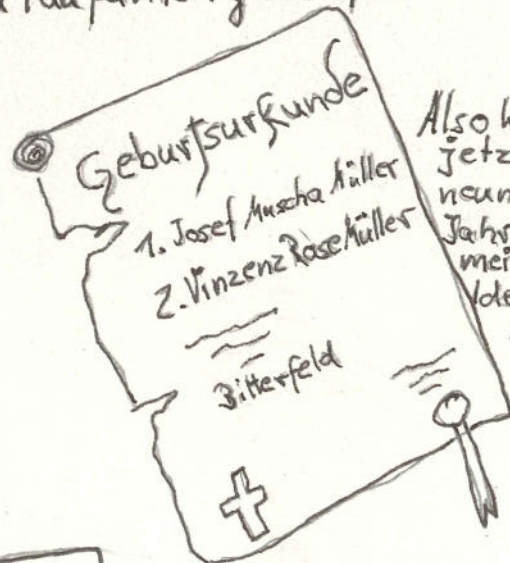 Geburtsurkunde
1. Josef Muscha Müller
2. Vinzenz Rose Müller
Bitterfeld
Also
neun